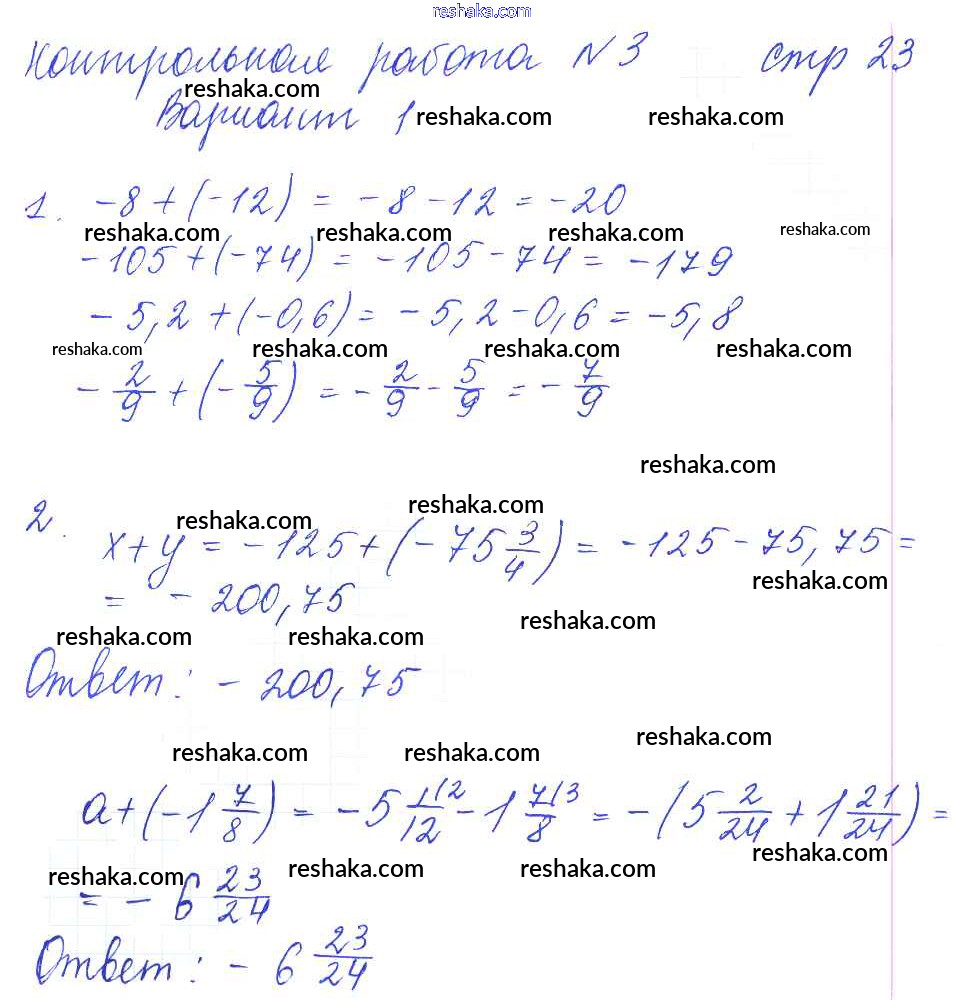 reshaka.com
Контрольная работа N3 стр 23
reshaka.com
Вариант 1 reshaka.com reshaka.com
1. -8+(-12) = -8-12 = -20
reshaka.com reshaka.com reshaka.com reshaka.com
-105+(-74) = -105-74 = -179
-5,2+(-0,6) = -5,2-0,6 = -5,8
reshaka.com reshaka.com reshaka.com reshaka.com
-2/9+(-5/9) = -2/9-5/9 = -7/9
reshaka.com
reshaka.com
2. reshaka.com
x+y = -125+(-75 3/4) = -125-75,75 =
reshaka.com
= -200,75
reshaka.com
reshaka.com reshaka.com
Ответ: -200,75
reshaka.com reshaka.com reshaka.com
a+(-1 7/8) = -5 1/12 |2 - 1 7/8 |3 = -(5 2/24 + 1 21/24) =
reshaka.com reshaka.com reshaka.com reshaka.com
= -6 23/24
Ответ: -6 23/24